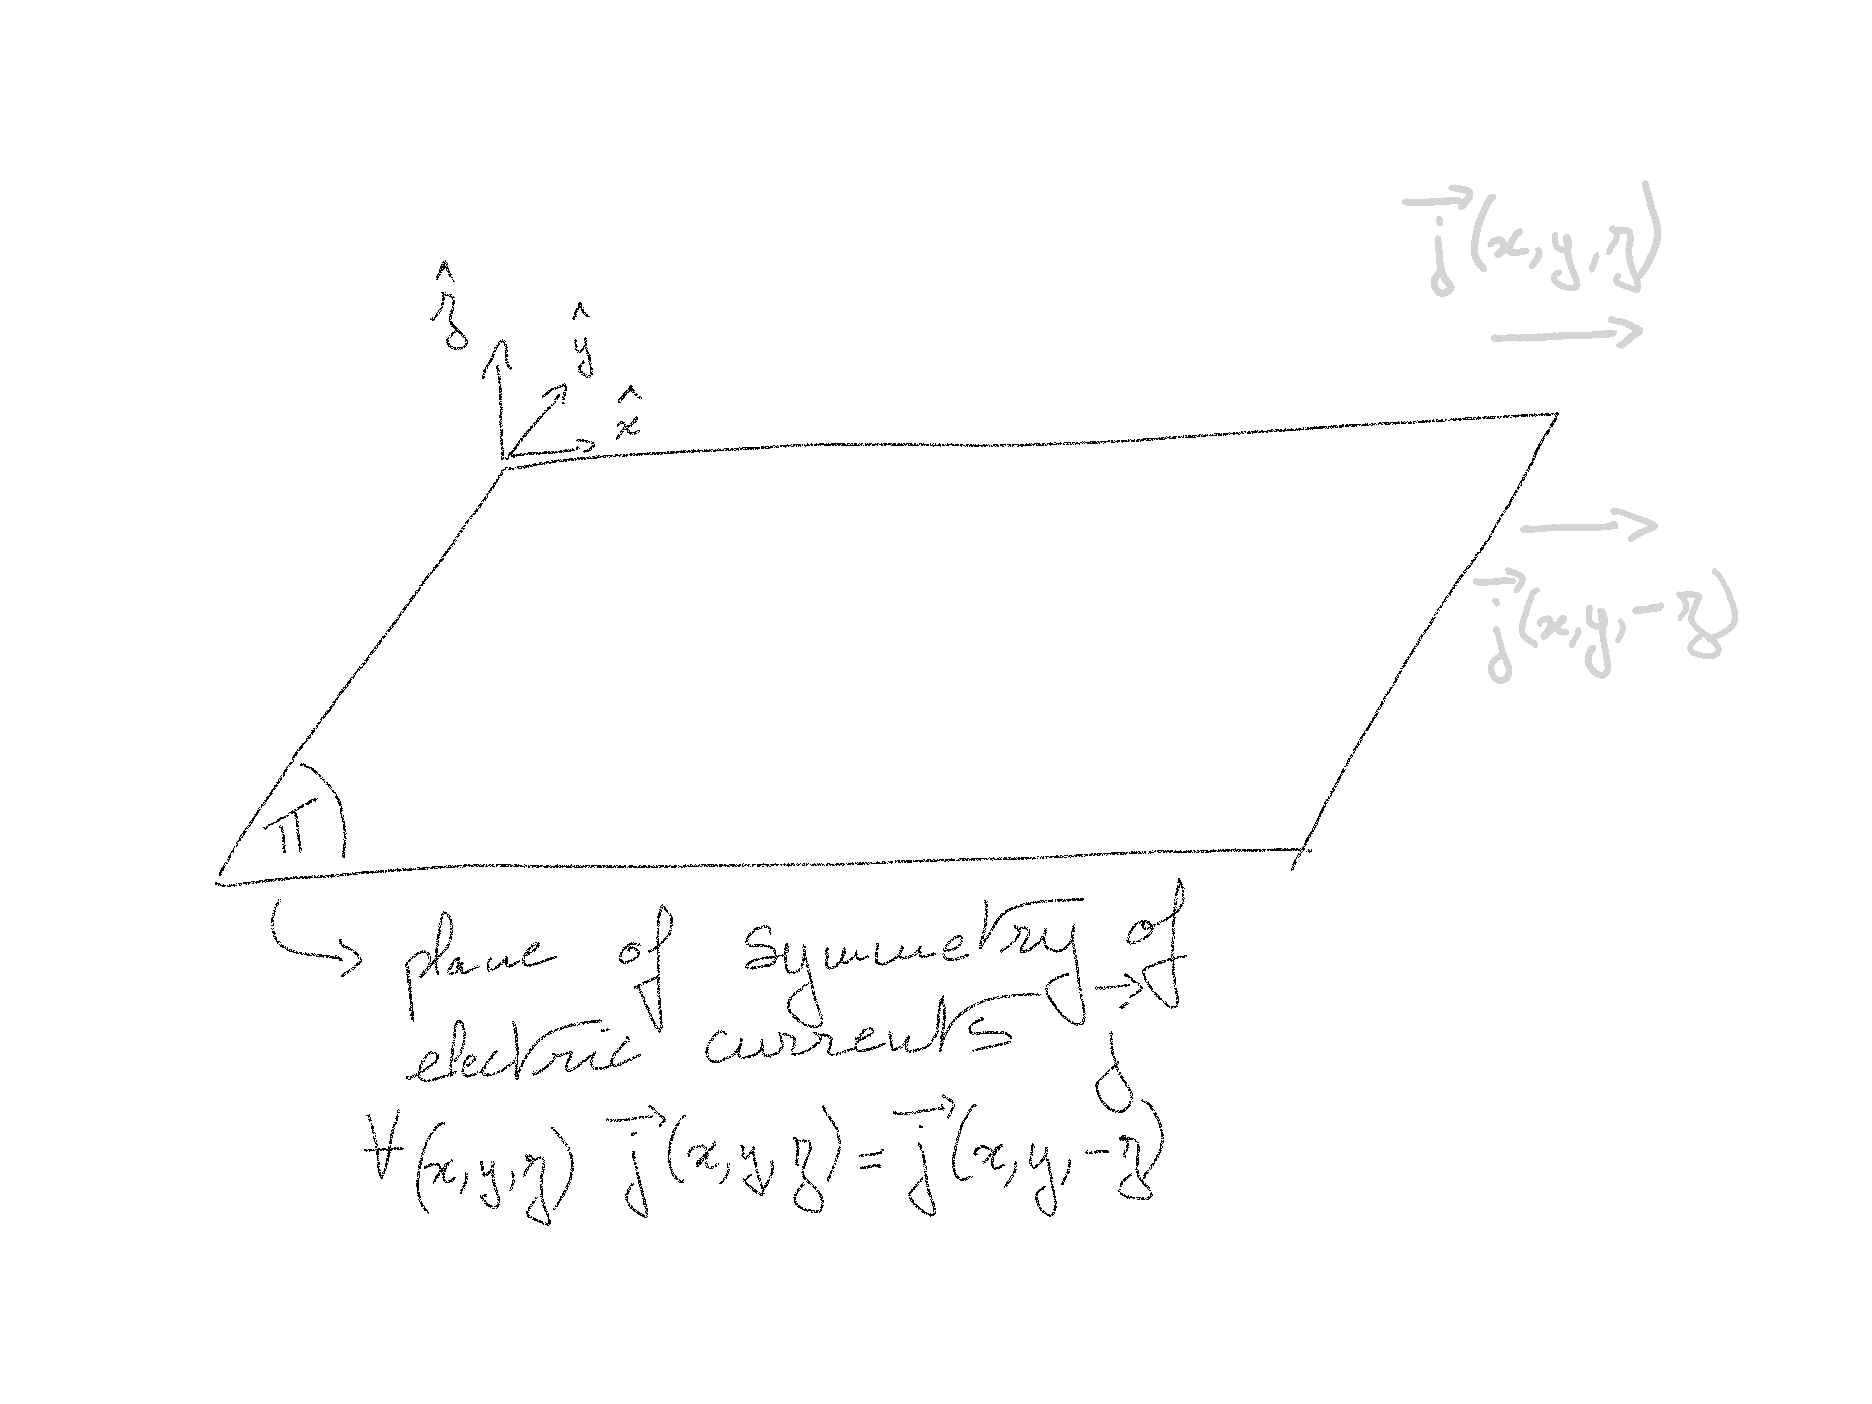 j⃗(x,y,z)
ẑ
ŷ
x̂
j⃗(x,y,-z)
π
plane of symmetry of
electric currents j⃗
∀(x,y,z) j⃗(x,y,z)=j⃗(x,y,-z)